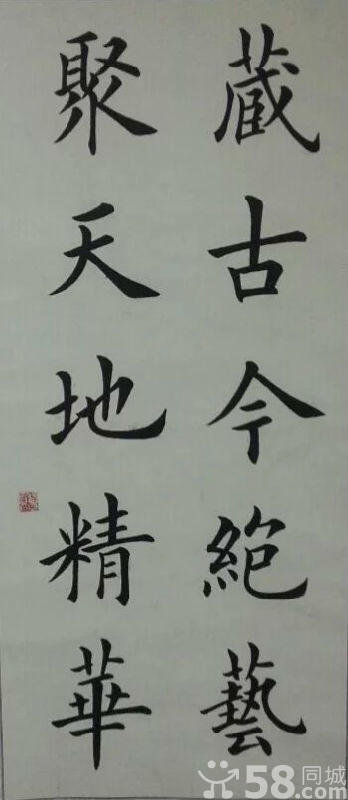 藏古今絶藝
聚天地精華
58同城